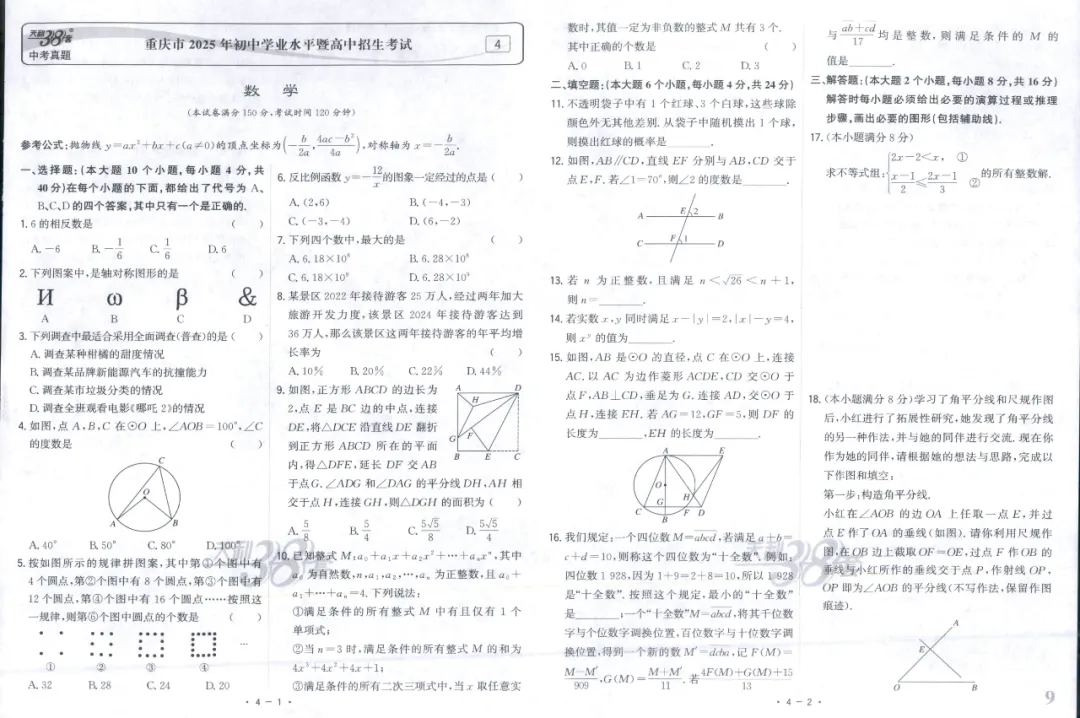 天利38套
中考真题
重庆市 2025 年初中学业水平暨高中招生考试
4
数 学
(本试卷满分 150 分,考试时间 120 分钟)
参考公式:抛物线 y=ax²+bx+c(a≠0)的顶点坐标为(-b/2a, (4ac-b²)/4a),对称轴为 x=-b/2a.
一、选择题:(本大题 10 个小题,每小题 4 分,共
40 分)在每个小题的下面,都给出了代号为 A、
B、C、D 的四个答案,其中只有一个是正确的.
1. 6 的相反数是 ( )
A. -6 B. -1/6 C. 1/6 D. 6
2. 下列图案中,是轴对称图形的是 ( )
И ω β &
A B C D
3. 下列调查中最适合采用全面调查(普查)的是 ( )
A. 调查某种柑橘的甜度情况
B. 调查某品牌新能源汽车的抗撞能力
C. 调查某市垃圾分类的情况
D. 调查全班观看电影《哪吒 2》的情况
4. 如图,点 A,B,C 在⊙O 上,∠AOB=100°,∠C
的度数是 ( )
C
O
A B
A. 40° B. 50° C. 80° D. 100°
5. 按如图所示的规律拼图案,其中第①个图中有
4 个圆点,第②个图中有 8 个圆点,第③个图中有
12 个圆点,第④个图中有 16 个圆点……按照这
一规律,则第⑥个图中圆点的个数是 ( )
…
① ② ③ ④
A. 32 B. 28 C. 24 D. 20
6. 反比例函数 y=-12/x 的图象一定经过的点是 ( )
A. (2,6) B. (-4,-3)
C. (-3,-4) D. (6,-2)
7. 下列四个数中,最大的是 ( )
A. 6.18×10⁸ B. 6.28×10⁸
C. 6.18×10⁹ D. 6.28×10⁹
8. 某景区 2022 年接待游客 25 万人,经过两年加大
旅游开发力度,该景区 2024 年接待游客达到
36 万人,那么该景区这两年接待游客的年平均增
长率为 ( )
A. 10% B. 20% C. 22% D. 44%
9. 如图,正方形 ABCD 的边长为
2,点 E 是 BC 边的中点,连接
DE,将△DCE 沿直线 DE 翻折
到正方形 ABCD 所在的平面
内,得△DFE,延长 DF 交 AB
于点 G. ∠ADG 和∠DAG 的平分线 DH,AH 相
交于点 H,连接 GH,则△DGH 的面积为 ( )
A D
H
G F
B E C
A. 5/8 B. 5/4 C. 5√5/8 D. 5√5/4
10. 已知整式 M:a₀+a₁x+a₂x²+…+aₙxⁿ,其中
a₀ 为自然数,n,a₁,a₂,…,aₙ 为正整数,且 a₀+
a₁+…+aₙ=4. 下列说法:
①满足条件的所有整式 M 中有且仅有 1 个
单项式;
②当 n=3 时,满足条件的所有整式 M 的和为
4x³+4x²+4x+1;
③满足条件的所有二次三项式中,当 x 取任意实
· 4 - 1 ·
数时,其值一定为非负数的整式 M 共有 3 个.
其中正确的个数是 ( )
A. 0 B. 1 C. 2 D. 3
二、填空题:(本大题 6 个小题,每小题 4 分,共 24 分)
11. 不透明袋子中有 1 个红球、3 个白球,这些球除
颜色外无其他差别. 从袋子中随机摸出 1 个球,
则摸出红球的概率是______.
12. 如图,AB∥CD,直线 EF 分别与 AB,CD 交于
点 E,F. 若∠1=70°,则∠2 的度数是______.
A E 2 B
C F 1 D
13. 若 n 为正整数,且满足 n<√26<n+1,
则 n=______.
14. 若实数 x,y 同时满足 x-|y|=2,|x|-y=4,
则 xʸ 的值为______.
15. 如图,AB 是⊙O 的直径,点 C 在⊙O 上,连接
AC. 以 AC 为边作菱形 ACDE,CD 交⊙O 于
点 F,AB⊥CD,垂足为 G. 连接 AD,交⊙O 于
点 H,连接 EH. 若 AG=12,GF=5,则 DF 的
长度为______,EH 的长度为______.
A E
O
G H
C B F D
16. 我们规定:一个四位数 M=abcd,若满足 a+b=
c+d=10,则称这个四位数为“十全数”. 例如:
四位数 1 928,因为 1+9=2+8=10,所以 1 928
是“十全数”. 按照这个规定,最小的“十全数”
是______;一个“十全数”M=abcd,将其千位数
字与个位数字调换位置,百位数字与十位数字调
换位置,得到一个新的数 M′=dcba,记 F(M)=
(M-M′)/909,G(M)=(M+M′)/11. 若(4F(M)+G(M)+15)/13
· 4 - 2 ·
与(ab+cd)/17 均是整数,则满足条件的 M 的
值是______.
三、解答题:(本大题 2 个小题,每小题 8 分,共 16 分)
解答时每小题必须给出必要的演算过程或推理
步骤,画出必要的图形(包括辅助线).
17. (本小题满分 8 分)
求不等式组:{2x-2<x, ① (x-1)/2≤(2x-1)/3 ② 的所有整数解.
18. (本小题满分 8 分)学习了角平分线和尺规作图
后,小红进行了拓展性研究,她发现了角平分线
的另一种作法,并与她的同伴进行交流. 现在你
作为她的同伴,请根据她的想法与思路,完成以
下作图和填空:
第一步:构造角平分线.
小红在∠AOB 的边 OA 上任取一点 E,并过
点 E 作了 OA 的垂线(如图). 请你利用尺规作
图,在 OB 边上截取 OF=OE,过点 F 作 OB 的
垂线与小红所作的垂线交于点 P,作射线 OP,
OP 即为∠AOB 的平分线(不写作法,保留作图
痕迹).
A
E
O B
9